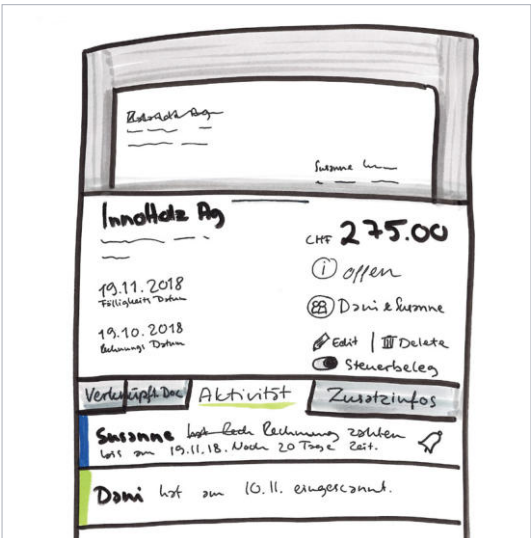 InnoHolz Ag
CHF 275.00
19.11.2018
Fälligkeits Datum
19.10.2018
Rechnungs Datum
offen
Dani & Susanne
Edit | Delete
Steuerbeleg
Verknüpft. Doc
Aktivität
Zusatzinfos
Susanne Rechnung zahlen
bis am 19.11.18. Noch 20 Tage Zeit.
Dani hat am 10.11. eingescannt.